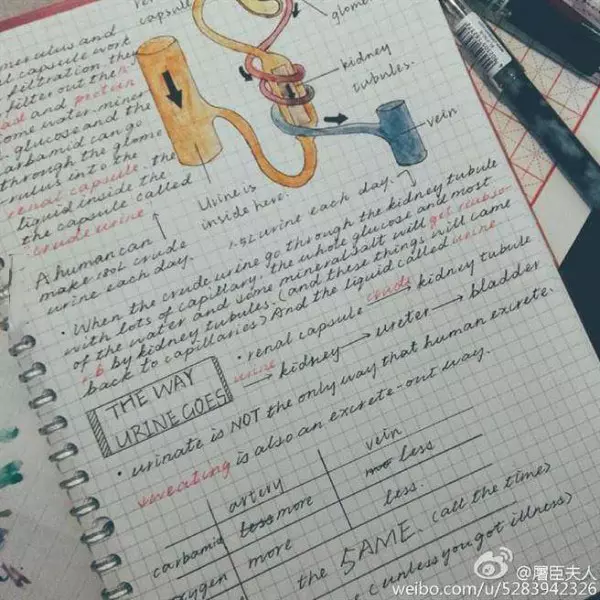 capsule
glome
merulus and
capsule work
filtration. they
filter out the
and protein
some water, miner
glucose and the
carbamid can go
through the glome
rulus into the
renal capsule. the
liquid inside the
the capsule called
crude urine
kidney
tubules.
vein
Urine is
inside here.
A human can
make 180L crude
urine each day.
1.5L urine each day.
· When the crude urine go through the kidney tubule
with lots of capillary. the whole glucose and most
of the water and some mineral salt will get reabsor
b by kidney tubules. (and these things will came
back to capillaries) And the liquid called urine
THE WAY
URINE GOES
· renal capsule crude kidney tubule
urine kidney → ureter → bladder
· urinate is NOT the only way that human excrete.
sweating is also an excrete-out way.
artery vein
carbamid less more less
oxygen more less.
the SAME. (all the time)
(unless you got illness)
@屠臣夫人
weibo.com/u/5283942326